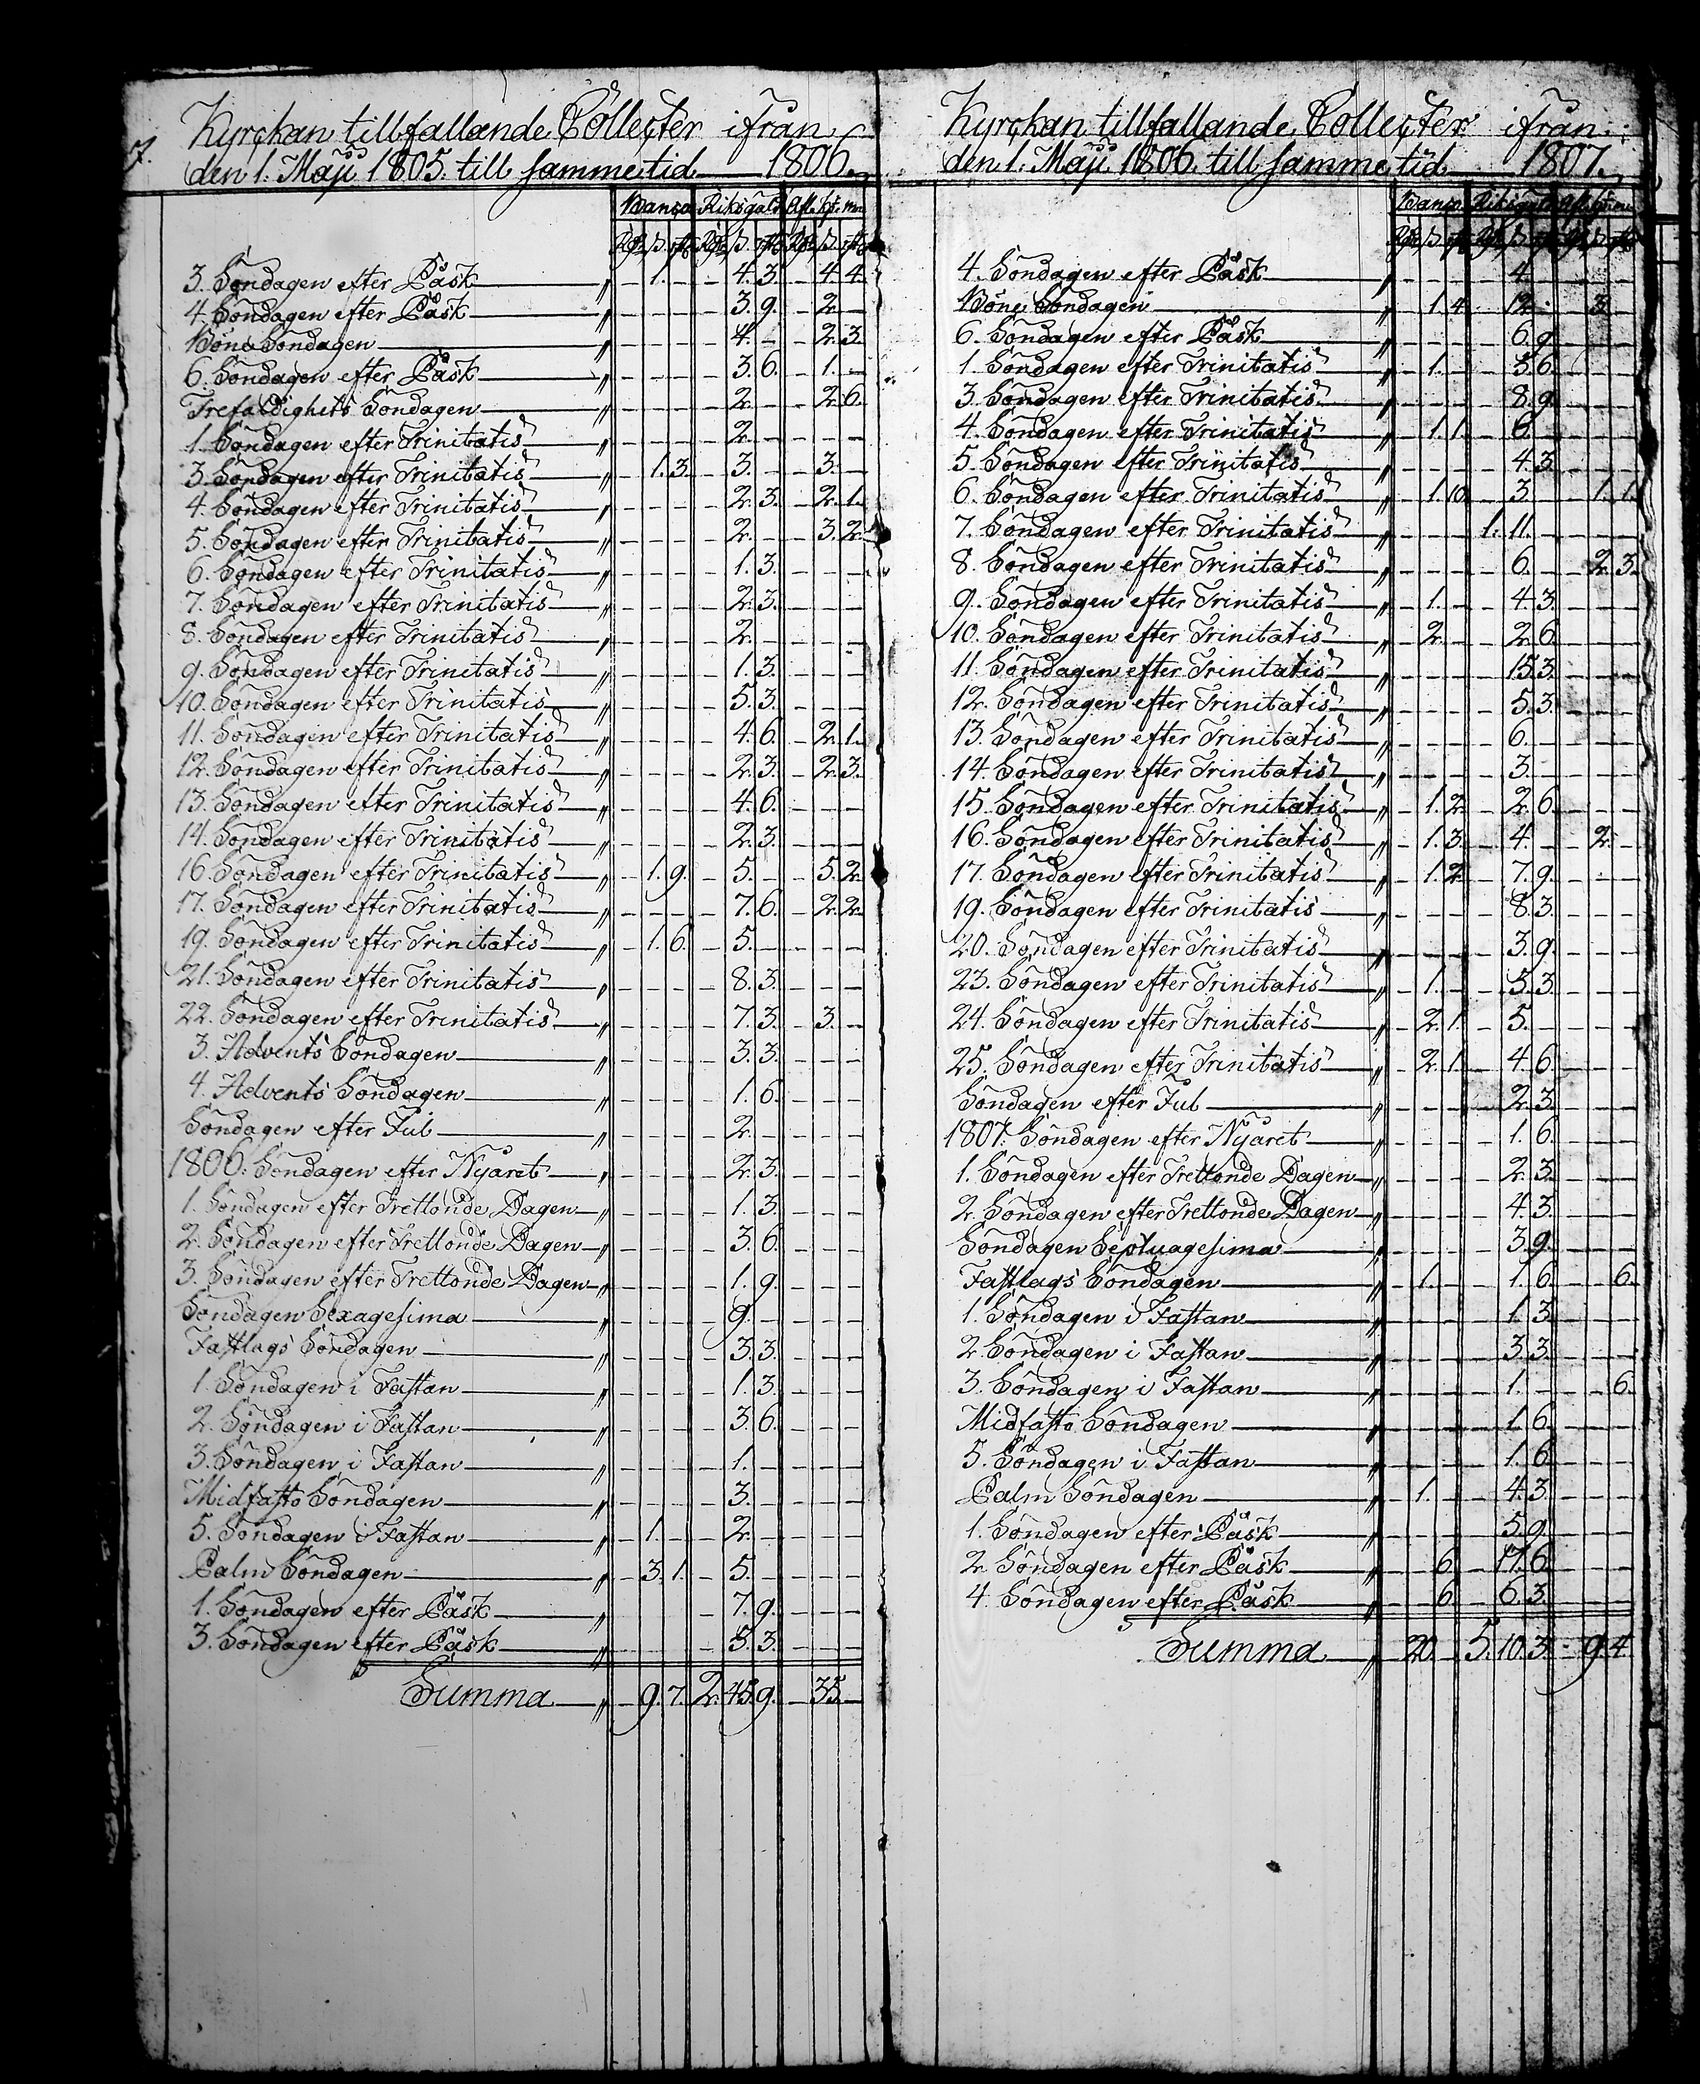 7.
Kyrckan tillfallande Collecter ifrån
den 1. Maji 1805. till samme tid 1806.
Banco Riksgäld Afl. kpr. mnt
Rdr ß rst Rdr ß rst Rdr ß rst
3. Söndagen efter Påsk 1. 4. 3. 4. 4.
4. Söndagen efter Påsk 3. 9. 2.
Böne Söndagen 4. 2. 3.
6. Söndagen efter Påsk 3. 6. 1.
Trefaldighets Söndagen 2. 2. 6.
1. Söndagen efter Trinitatis 2.
3. Söndagen efter Trinitatis 1. 3. 3. 3.
4. Söndagen efter Trinitatis 2. 3. 2. 1.
5. Söndagen efter Trinitatis 2. 3. 2.
6. Söndagen efter Trinitatis 1. 3.
7. Söndagen efter Trinitatis 2. 3.
8. Söndagen efter Trinitatis 2.
9. Söndagen efter Trinitatis 1. 3.
10. Söndagen efter Trinitatis 5. 3.
11. Söndagen efter Trinitatis 4. 6. 2. 1.
12. Söndagen efter Trinitatis 2. 3. 2. 3.
13. Söndagen efter Trinitatis 4. 6.
14. Söndagen efter Trinitatis 2. 3.
16. Söndagen efter Trinitatis 1. 9. 5. 5. 2.
17. Söndagen efter Trinitatis 7. 6. 2. 2.
19. Söndagen efter Trinitatis 1. 6. 5.
21. Söndagen efter Trinitatis 8. 3.
22. Söndagen efter Trinitatis 7. 3. 3.
3. Advents Söndagen 3. 3.
4. Advents Söndagen 1. 6.
Söndagen efter Jul 2.
1806. Söndagen efter Nyåret 2. 3.
1. Söndagen efter Trettonde Dagen 1. 3.
2. Söndagen efter Trettonde Dagen 3. 6.
3. Söndagen efter Trettonde Dagen 1. 9.
Söndagen Sexagesima 9.
Fastlags Söndagen 3. 3.
1. Söndagen i Fastan 1. 3.
2. Söndagen i Fastan 3. 6.
3. Söndagen i Fastan 1.
Midfasto Söndagen 3.
5. Söndagen i Fastan 1. 2.
Palm Söndagen 3. 1. 5.
1. Söndagen efter Påsk 7. 9.
3. Söndagen efter Påsk 5. 3.
Summa 9. 7. 2. 45. 9. 35.
Kyrckan tillfallande Collecter ifrån
den 1. Maji 1806. till samme tid 1807.
Banco Riksgäld Afl. kpr. mnt
Rdr ß rst Rdr ß rst Rdr ß rst
4. Söndagen efter Påsk 4.
Böne Söndagen 1. 4. 12. 3.
6. Söndagen efter Påsk 6. 9.
1. Söndagen efter Trinitatis 1. 3. 6.
3. Söndagen efter Trinitatis 8. 9.
4. Söndagen efter Trinitatis 1. 1. 6.
5. Söndagen efter Trinitatis 4. 3.
6. Söndagen efter Trinitatis 1. 10. 3. 1. 1.
7. Söndagen efter Trinitatis 1. 11.
8. Söndagen efter Trinitatis 6. 2. 3.
9. Söndagen efter Trinitatis 1. 4. 3.
10. Söndagen efter Trinitatis 2. 2. 6.
11. Söndagen efter Trinitatis 15. 3.
12. Söndagen efter Trinitatis 5. 3.
13. Söndagen efter Trinitatis 6.
14. Söndagen efter Trinitatis 3.
15. Söndagen efter Trinitatis 1. 2. 2. 6.
16. Söndagen efter Trinitatis 1. 3. 4. 2.
17. Söndagen efter Trinitatis 1. 2. 7. 9.
19. Söndagen efter Trinitatis 8. 3.
20. Söndagen efter Trinitatis 3. 9.
23. Söndagen efter Trinitatis 1. 5. 3.
24. Söndagen efter Trinitatis 2. 1. 5.
25. Söndagen efter Trinitatis 2. 1. 4. 6.
Söndagen efter Jul 2. 3.
1807. Söndagen efter Nyåret 1. 6.
1. Söndagen efter Trettonde Dagen 2. 3.
2. Söndagen efter Trettonde Dagen 4. 3.
Söndagen Septuagesima 3. 9.
Fastlags Söndagen 1. 1. 6. 6.
1. Söndagen i Fastan 1. 3.
2. Söndagen i Fastan 3. 3.
3. Söndagen i Fastan 1. 6.
Midfasto Söndagen 1. 6.
5. Söndagen i Fastan 1. 6.
Palm Söndagen 1. 4. 3.
1. Söndagen efter Påsk 5. 9.
2. Söndagen efter Påsk 6. 17. 6.
4. Söndagen efter Påsk 6. 6. 3.
Summa 20. 5. 10. 3. 9. 4.